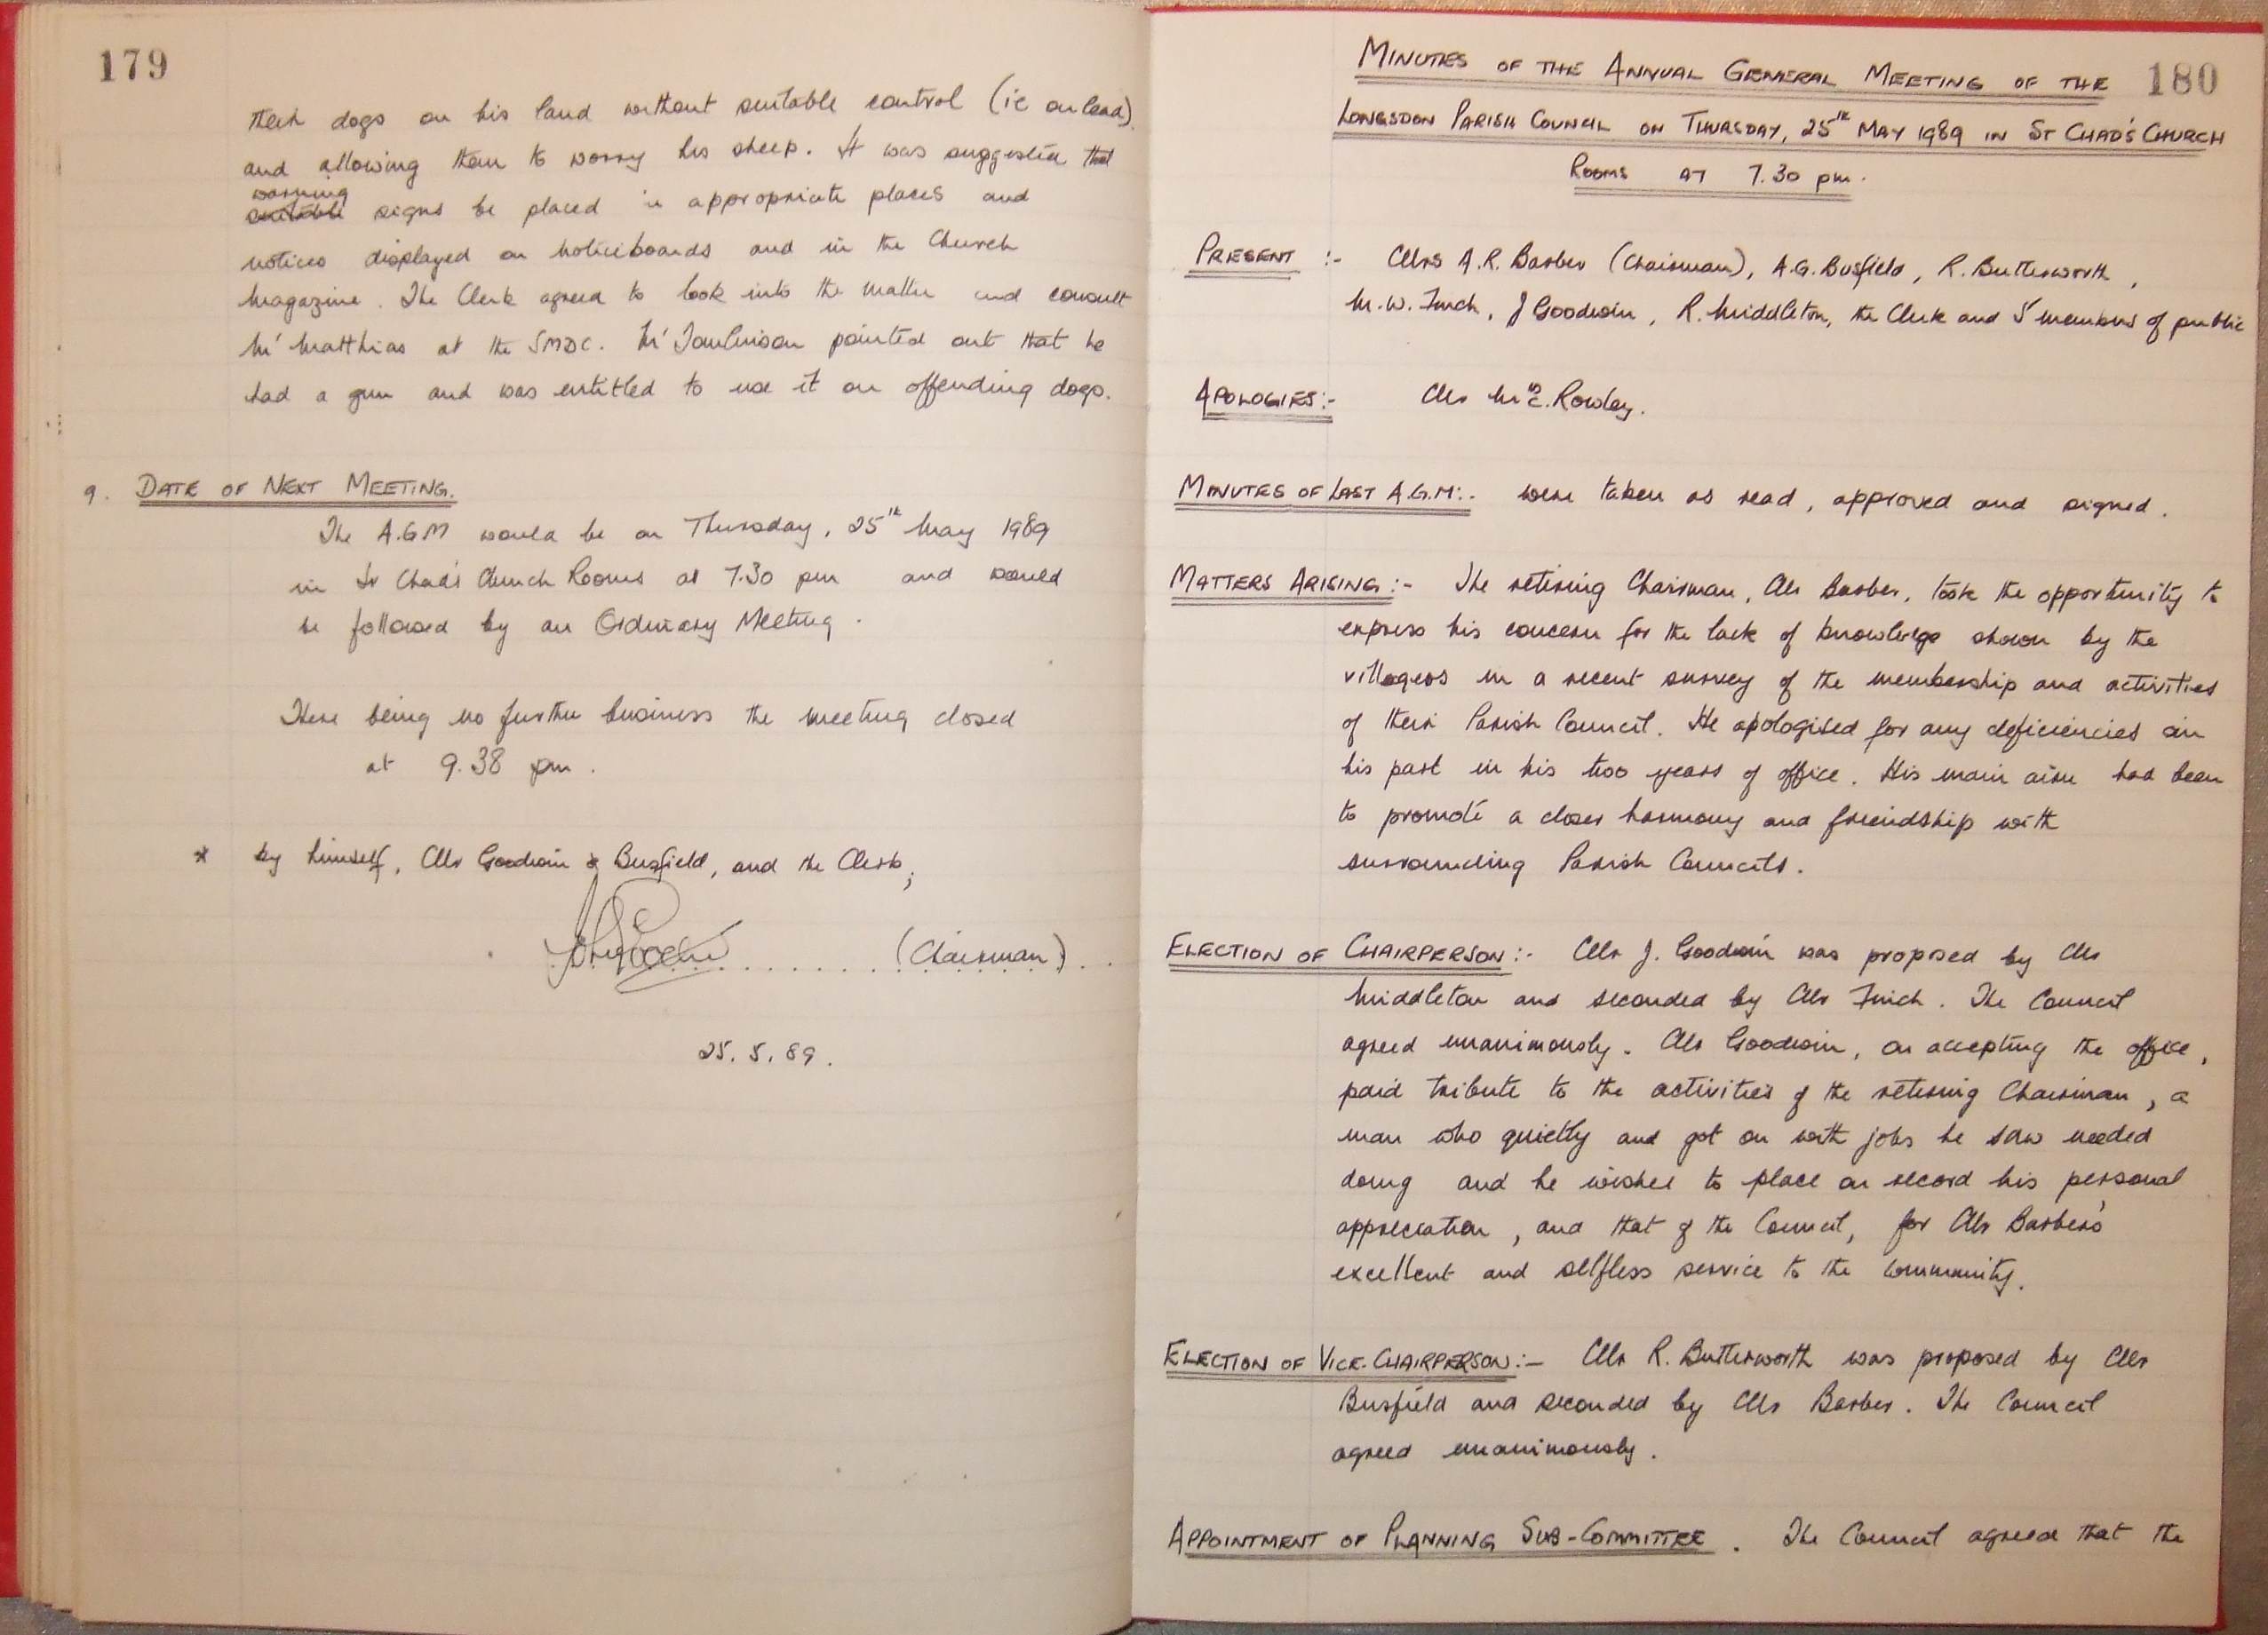 179
their dogs on his land without suitable control (ie on lead)
and allowing them to worry his sheep. It was suggested that
warning
suitable signs be placed in appropriate places and
notices displayed on noticeboards and in the Church
magazine. The Clerk agreed to look into the matter and consult
Mr Matthias at the SMDC. Mr Tomlinson pointed out that he
had a gun and was entitled to use it on offending dogs.
9. DATE OF NEXT MEETING.
The A.G.M would be on Thursday, 25th May 1989
in St Chad's Church Rooms at 7.30 pm and would
be followed by an Ordinary Meeting.
There being no further business the meeting closed
at 9.38 pm.
* by himself, Cllr Goodwin & Busfield, and the Clerk;
(Chairman)
25. 5. 89.
MINUTES OF THE ANNUAL GENERAL MEETING OF THE 180
LONGSDON PARISH COUNCIL ON THURSDAY, 25th MAY 1989 IN ST CHAD'S CHURCH
ROOMS AT 7.30 pm.
PRESENT :- Cllrs A.R. Barber (Chairman), A.G. Busfield, R. Butterworth,
M.W. Finch, J Goodwin, R. Middleton, the Clerk and 5 members of public
APOLOGIES:- Cllr Mrs C. Rowley.
MINUTES OF LAST A.G.M:- were taken as read, approved and signed.
MATTERS ARISING:- The retiring Chairman, Cllr Barber, took the opportunity to
express his concern for the lack of knowledge shown by the
villagers in a recent survey of the membership and activities
of their Parish Council. He apologised for any deficiencies on
his part in his two years of office. His main aim had been
to promote a closer harmony and friendship with
surrounding Parish Councils.
ELECTION OF CHAIRPERSON:- Cllr J. Goodwin was proposed by Cllr
Middleton and seconded by Cllr Finch. The Council
agreed unanimously. Cllr Goodwin, on accepting the office,
paid tribute to the activities of the retiring Chairman, a
man who quietly and got on with jobs he saw needed
doing and he wished to place on record his personal
appreciation, and that of the Council, for Cllr Barber's
excellent and selfless service to the community.
ELECTION OF VICE-CHAIRPERSON:- Cllr R. Butterworth was proposed by Cllr
Busfield and seconded by Cllr Barber. The Council
agreed unanimously.
APPOINTMENT OF PLANNING SUB-COMMITTEE. The Council agreed that the